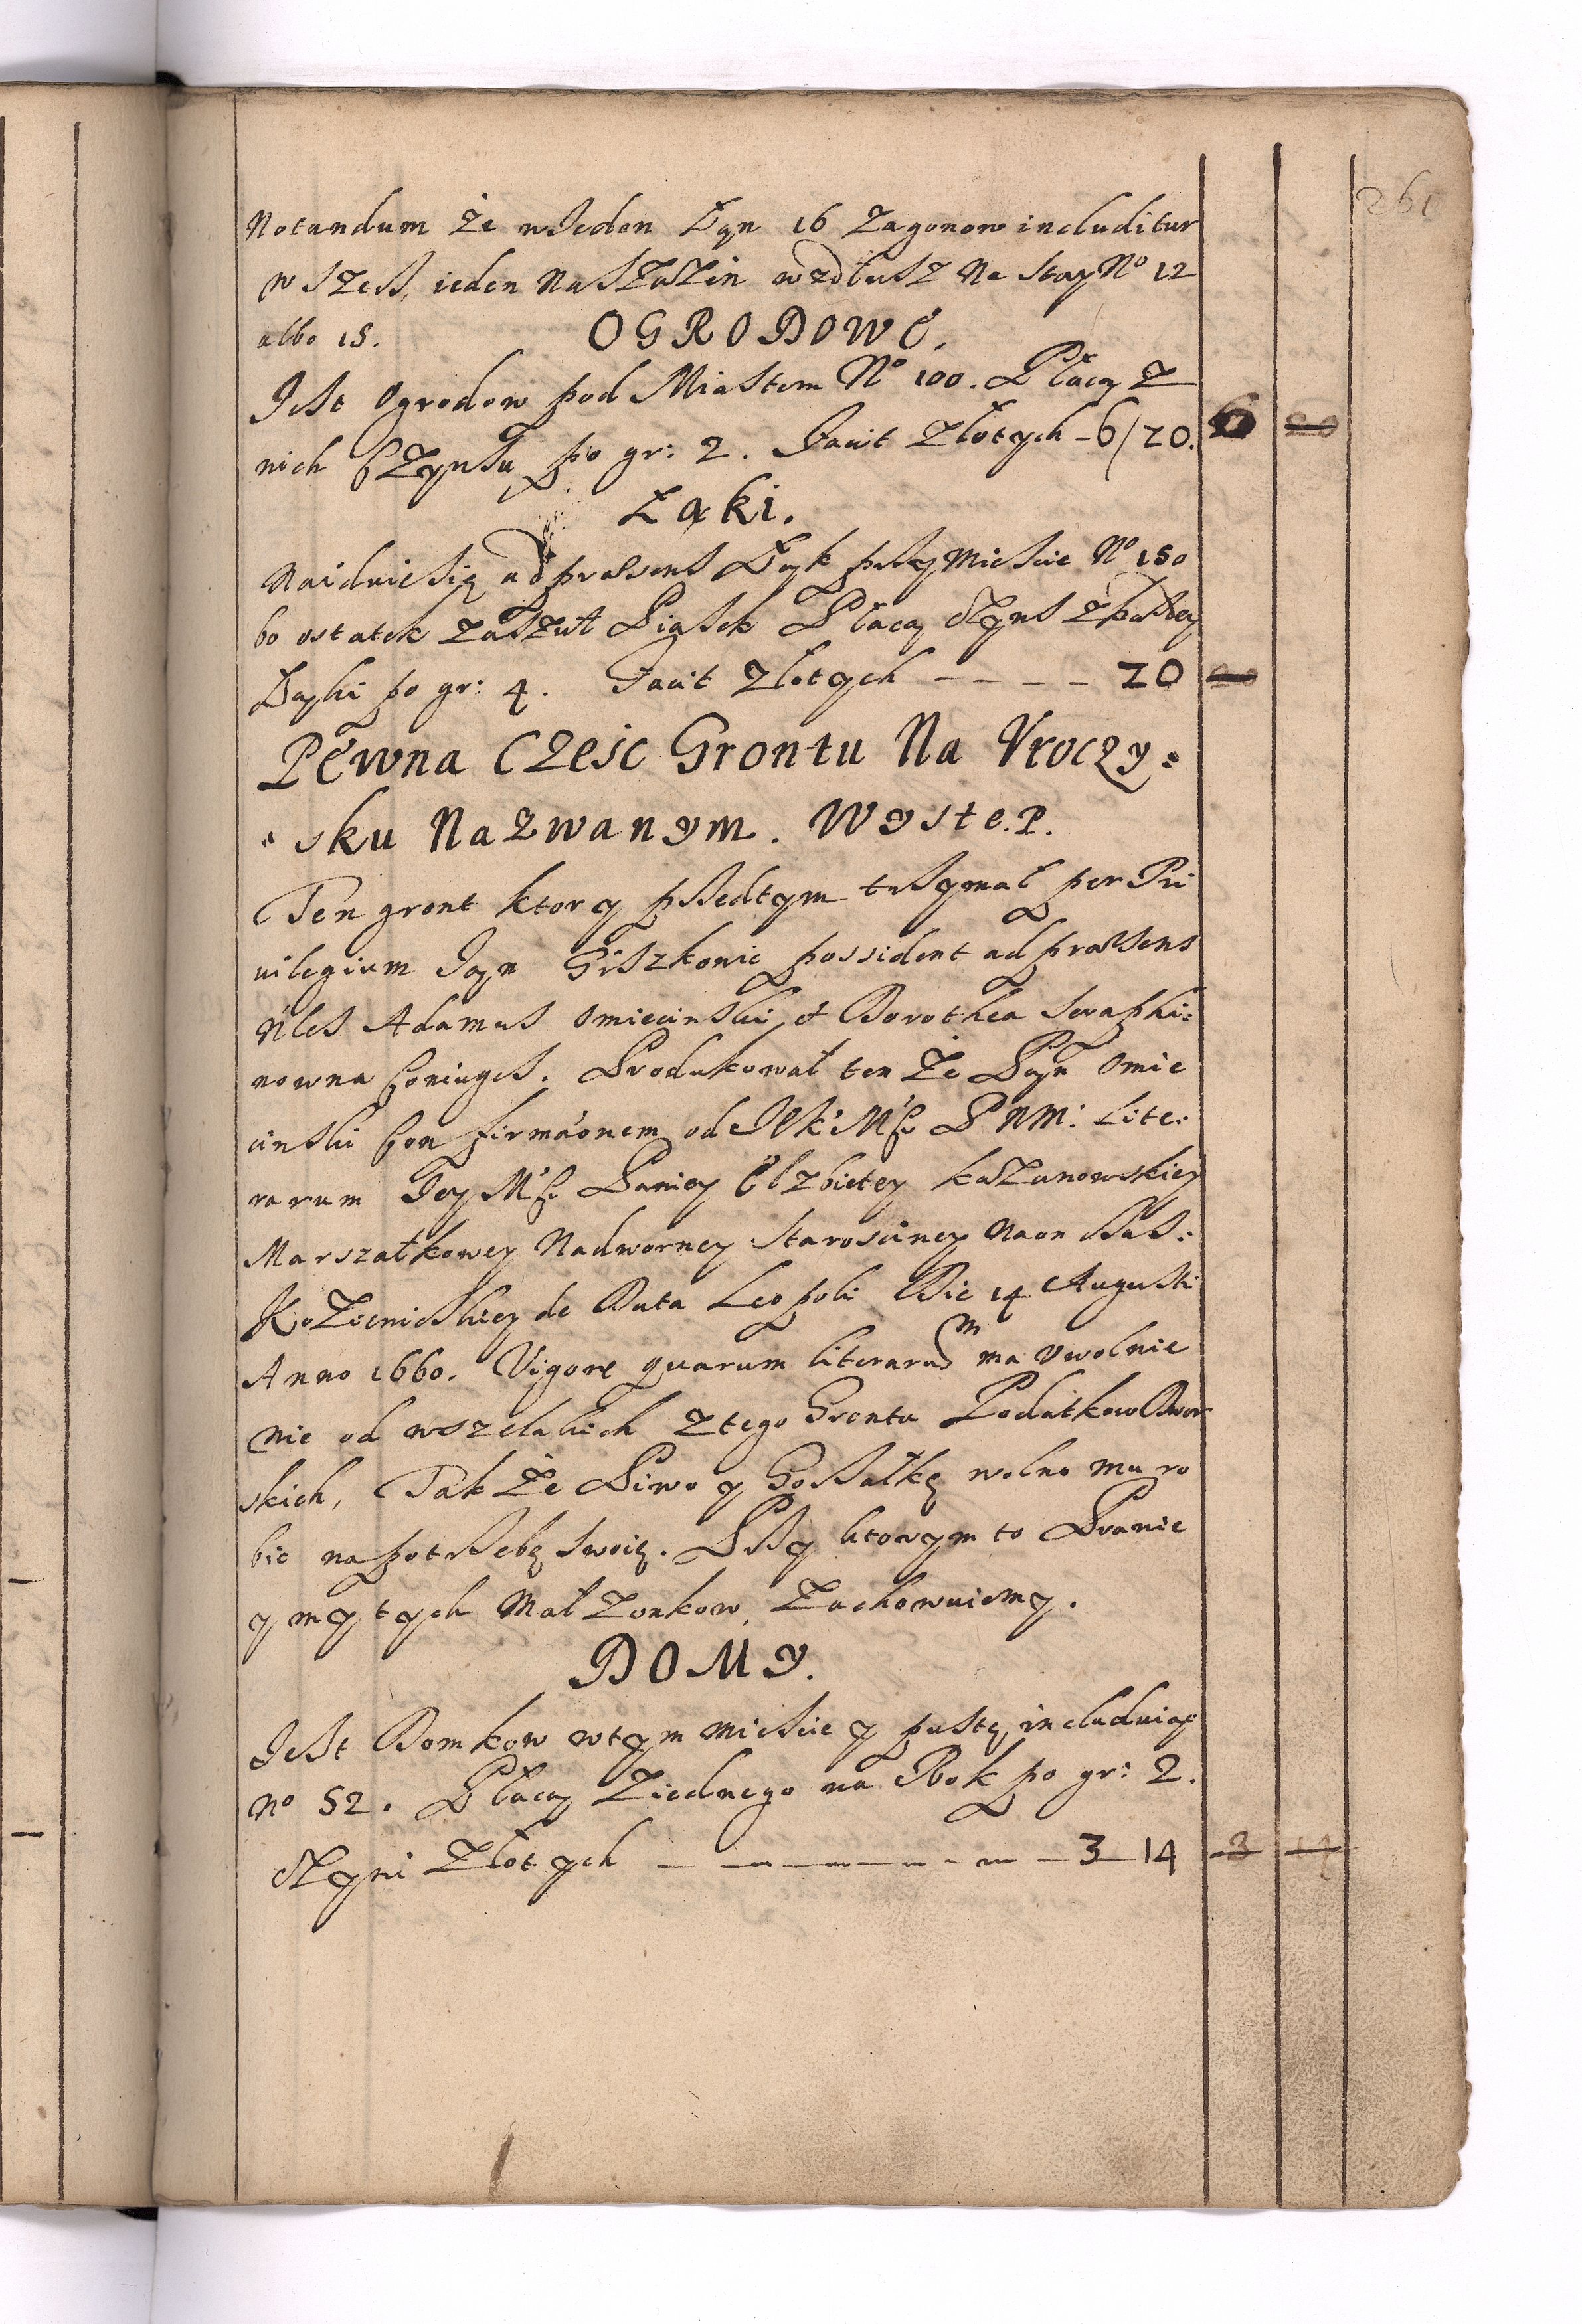 261
Notandum że wJeden Łąn 16 Zagonow includitur
w szesz, ieden Naszażin wzdłusz Na stay No 12
albo 15. OGRODOWE.
Jest Ogrodow pod Miastem No 100. Płacą z
nich Czynszu po gr: 2. Facit Złotych - 6/20. 6 20
Łąki.
Naiduie się ad præsens Łąk przy Miescie No 150
bo ostatek zaszuł Piasek Płacą Czynsz z każdey
Łąki po gr: 4. Facit Złotych - - - - 20 20
Pewna Czesc Grontu Na Vroczy:
: sku Nazwanym. Wystep.
Ten gront ktory przedtym trzymał per Pri
uilegium Jan Giszkonic possident ad præsens
Nles Adamus Omiecinski, et Dorothea Seraphi:
nowna Coniuges. Produkował ten że Pan Omie
cinski Confirmaónem od JKMCi PNM: Lite:
rarum Jey MCi Paniey Elzbietey Kazanowskiey
Marszałkowey Nadworney Starosciney Naon czas:
Kozienickiey de Data Leopoli Die 14 Augusti
Anno 1660. Vigore quarum literarum ma Vwolnie
nie od wszelakich ztego Grontu Podatkow Dwor
skich, Tak że Piwo y Gorzałkę wolno mu ro
bic na potrzebę swoię. Przy ktorym to Prawie
y my tych Małzonkow Zachowuiemy.
DOMY.
Jest Domkow wtym Miescie y puste includuiąc
No 52. Płacą Ziednego na Rok po gr: 2.
Czyni Złotych - - - - - - - 3 14 3 14